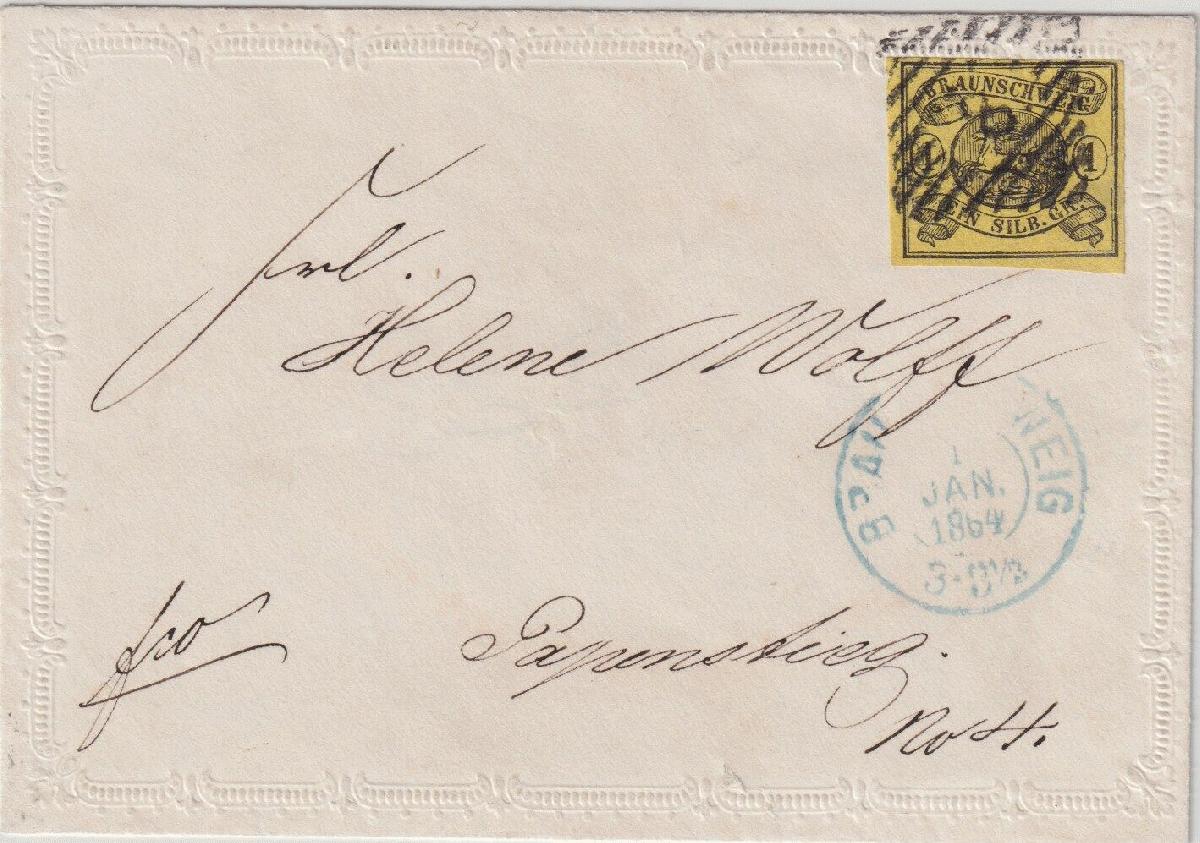 BRAUNSCHWEIG
1 1
EIN SILB. GR.
8
Frl.
Helene Wolff
BRAU NEIG
1
JAN.
1864
3-3½
fco
Papenstieg.
No 4.